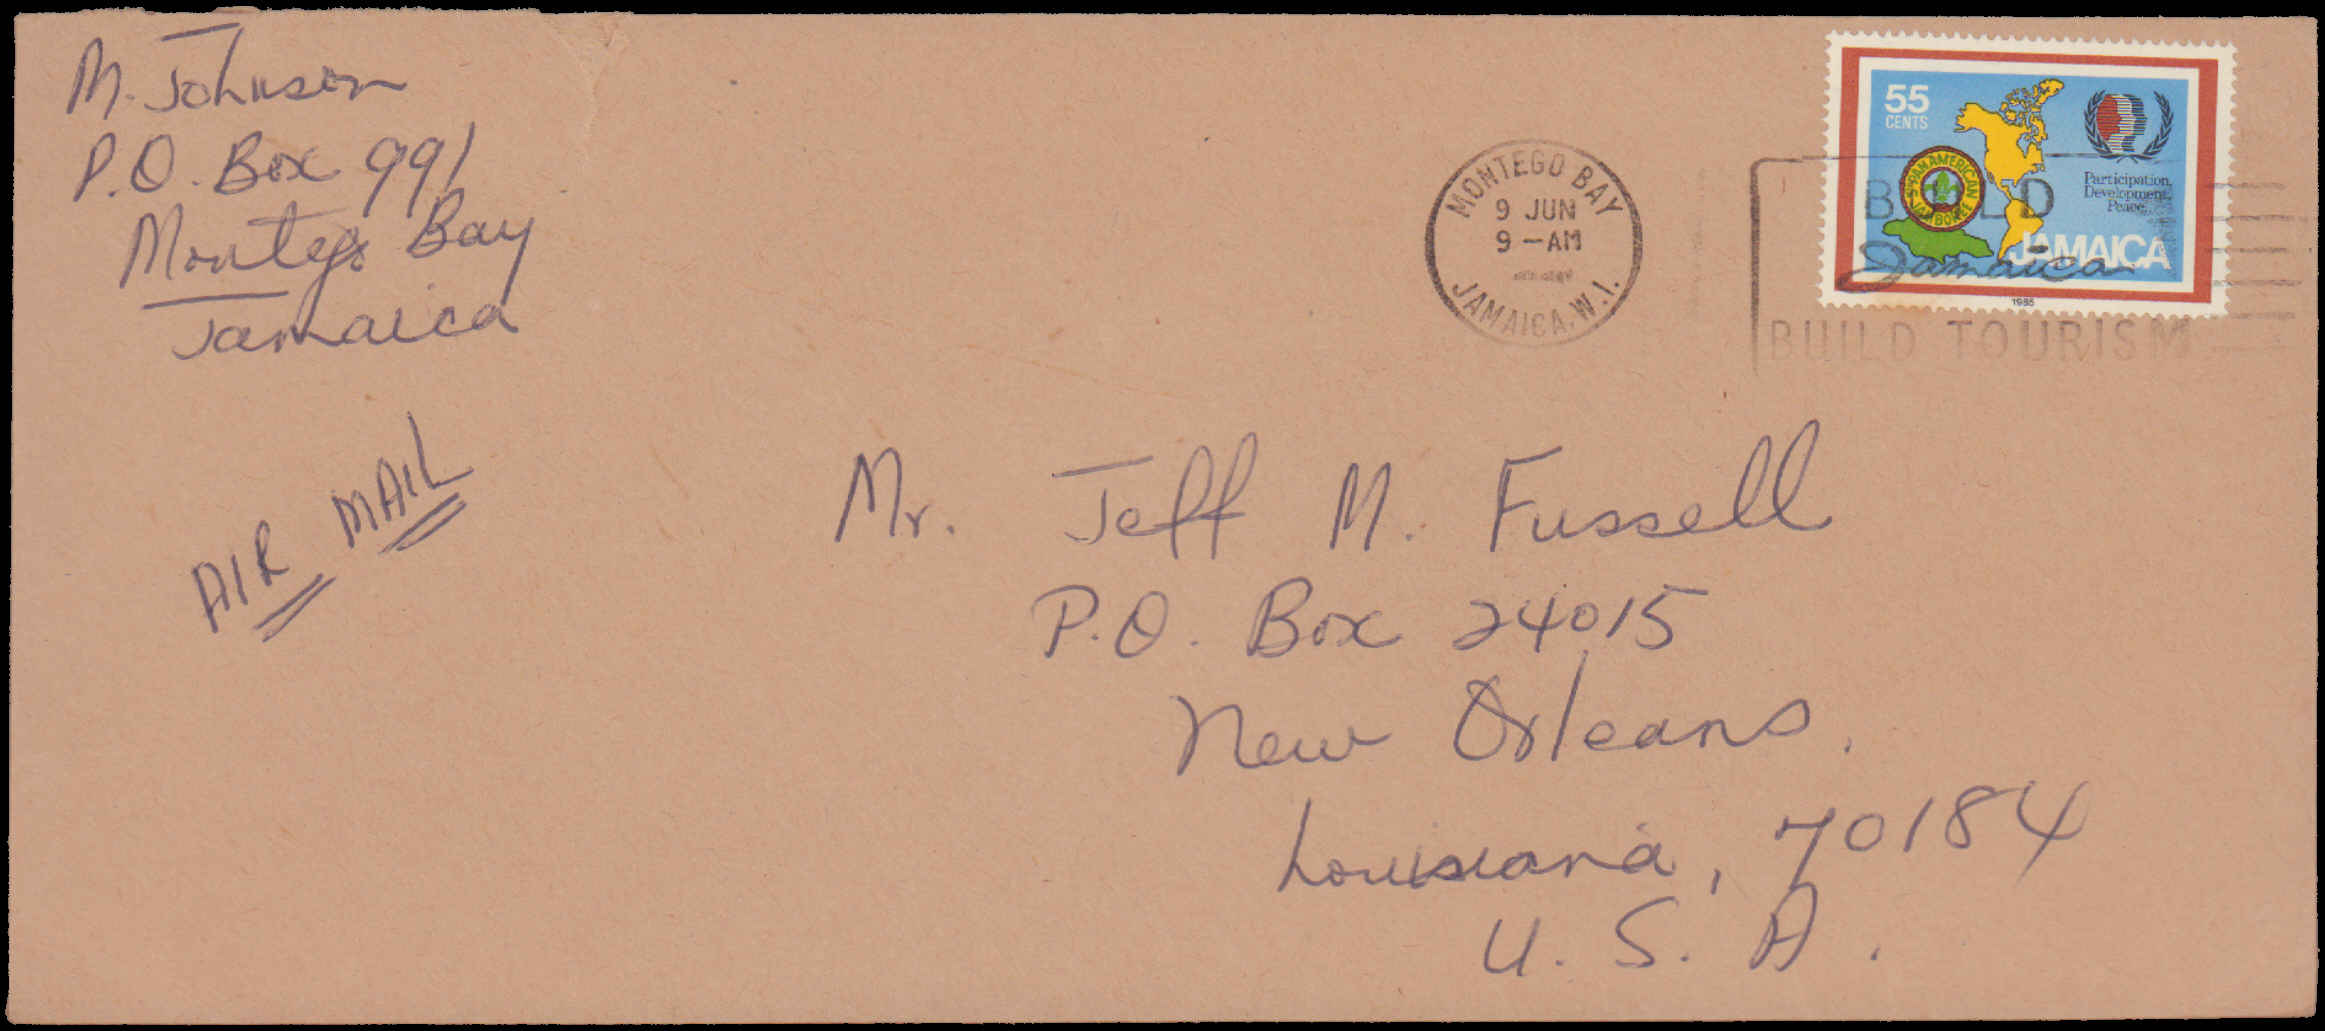 M. Johnson
P.O. Box 991
Montego Bay
Jamaica
AIR MAIL
MONTEGO BAY
9 JUN
9 -AM
JAMAICA. W.I.
BUILD
Jamaica
BUILD TOURISM
55
CENTS
5TH PANAMERICAN
JAMBOREE
Participation,
Development,
Peace.
JAMAICA
1985
Mr. Jeff M. Fussell
P.O. Box 24015
New Orleans,
Louisiana, 70184
U. S. A.